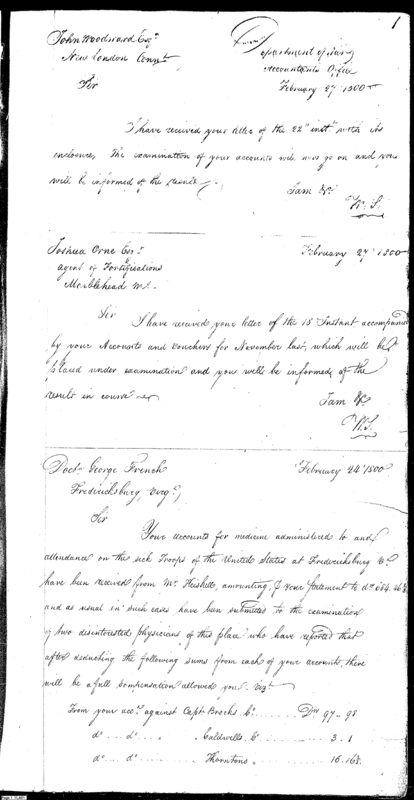 1
John Woodward Esqr
New London Connt
Department of War
Accountants Office
February 27 1800
Sir
I have received your letter of the 22d inst with its
enclosures, The examination of your accounts will now go on and you
will be informed of the result
I am &c
W. S.
Joshua Orne Esqr
agent of Fortifications
Marblehead Ms.
February 27th 1800
Sir
I have received your letter of the 18 Instant accompanied
by your Accounts and Vouchers for November last, which will be
placed under examination and you will be informed of the
results in course
I am &c
W. S.
Doctr George French
Fredericksburg, Virga
February 24th 1800
Sir
Your accounts for medicine administered to and
attendance on the sick Troops of the United States at Fredericksburg Va
have been received from Mr. Heiskell, amounting, your Statement to
and as usual in such cases have been submitted to the examination
of two disinterested physicians of this place who have reported that
after deducting the following sums from each of your accounts, there
will be a full compensation allowed you. Vizt
From your acct against Capt Brocks Co. Drs 97-98
do do Caldwells Co 3.1
do do Thorntons 16.168